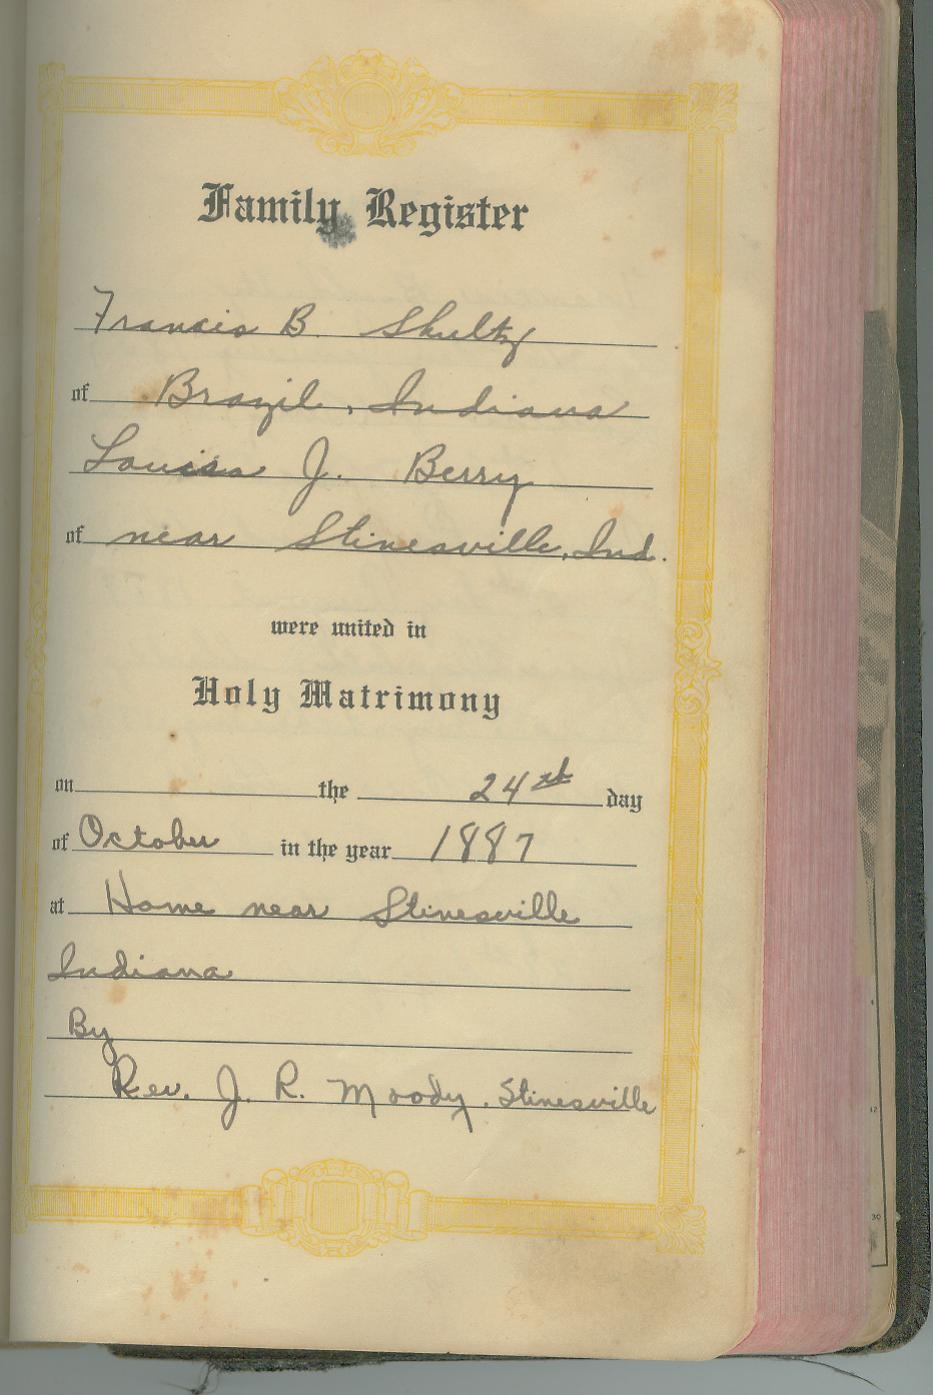 Family Register
Francis B. Shultz
of Brazil, Indiana
Louisa J. Berry
of near Stinesville, Ind.
were united in
Holy Matrimony
on the 24th day
of October in the year 1887
at Home near Stinesville
Indiana
By
Rev. J. R. Moody, Stinesville
12
30